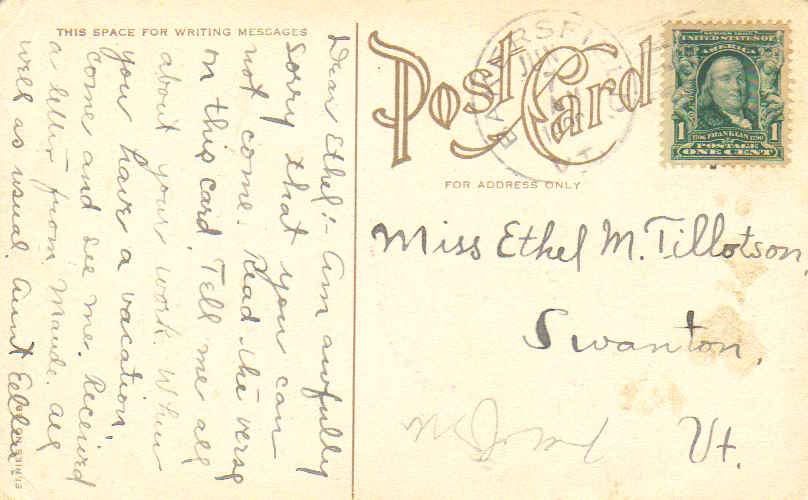 THIS SPACE FOR WRITING MESSAGES
Dear Ethel:- Am awfully
sorry that you can
not come. Read the verse
on this card. Tell me all
about your work. When
you have a vacation,
come and see me. Received
a letter from Maude. All
well as usual. Aunt
Post Card
FOR ADDRESS ONLY
BAKERSFIELD
JUN
VT.
SERIES 1902
UNITED STATES OF AMERICA
1706 FRANKLIN 1790
1 1
POSTAGE
ONE CENT
Miss Ethel M. Tillotson,
Swanton,
Vt.